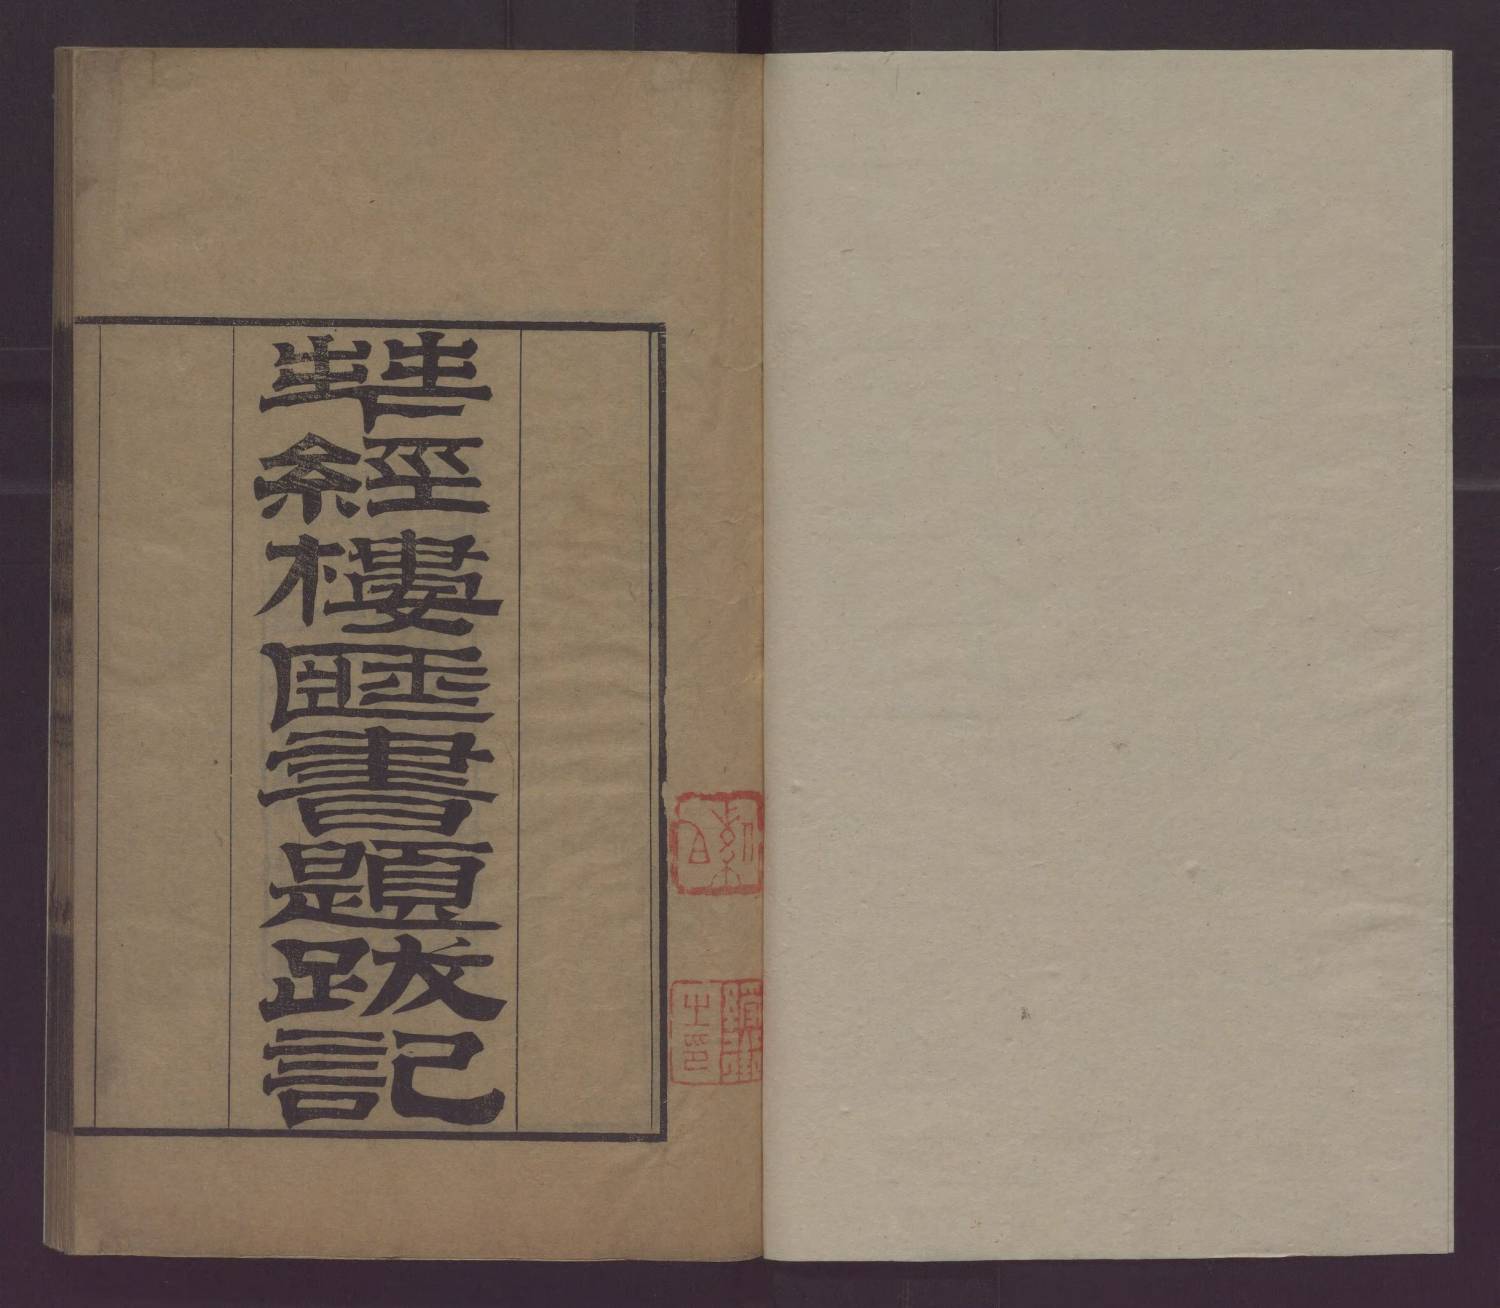 拜經樓藏書題跋記